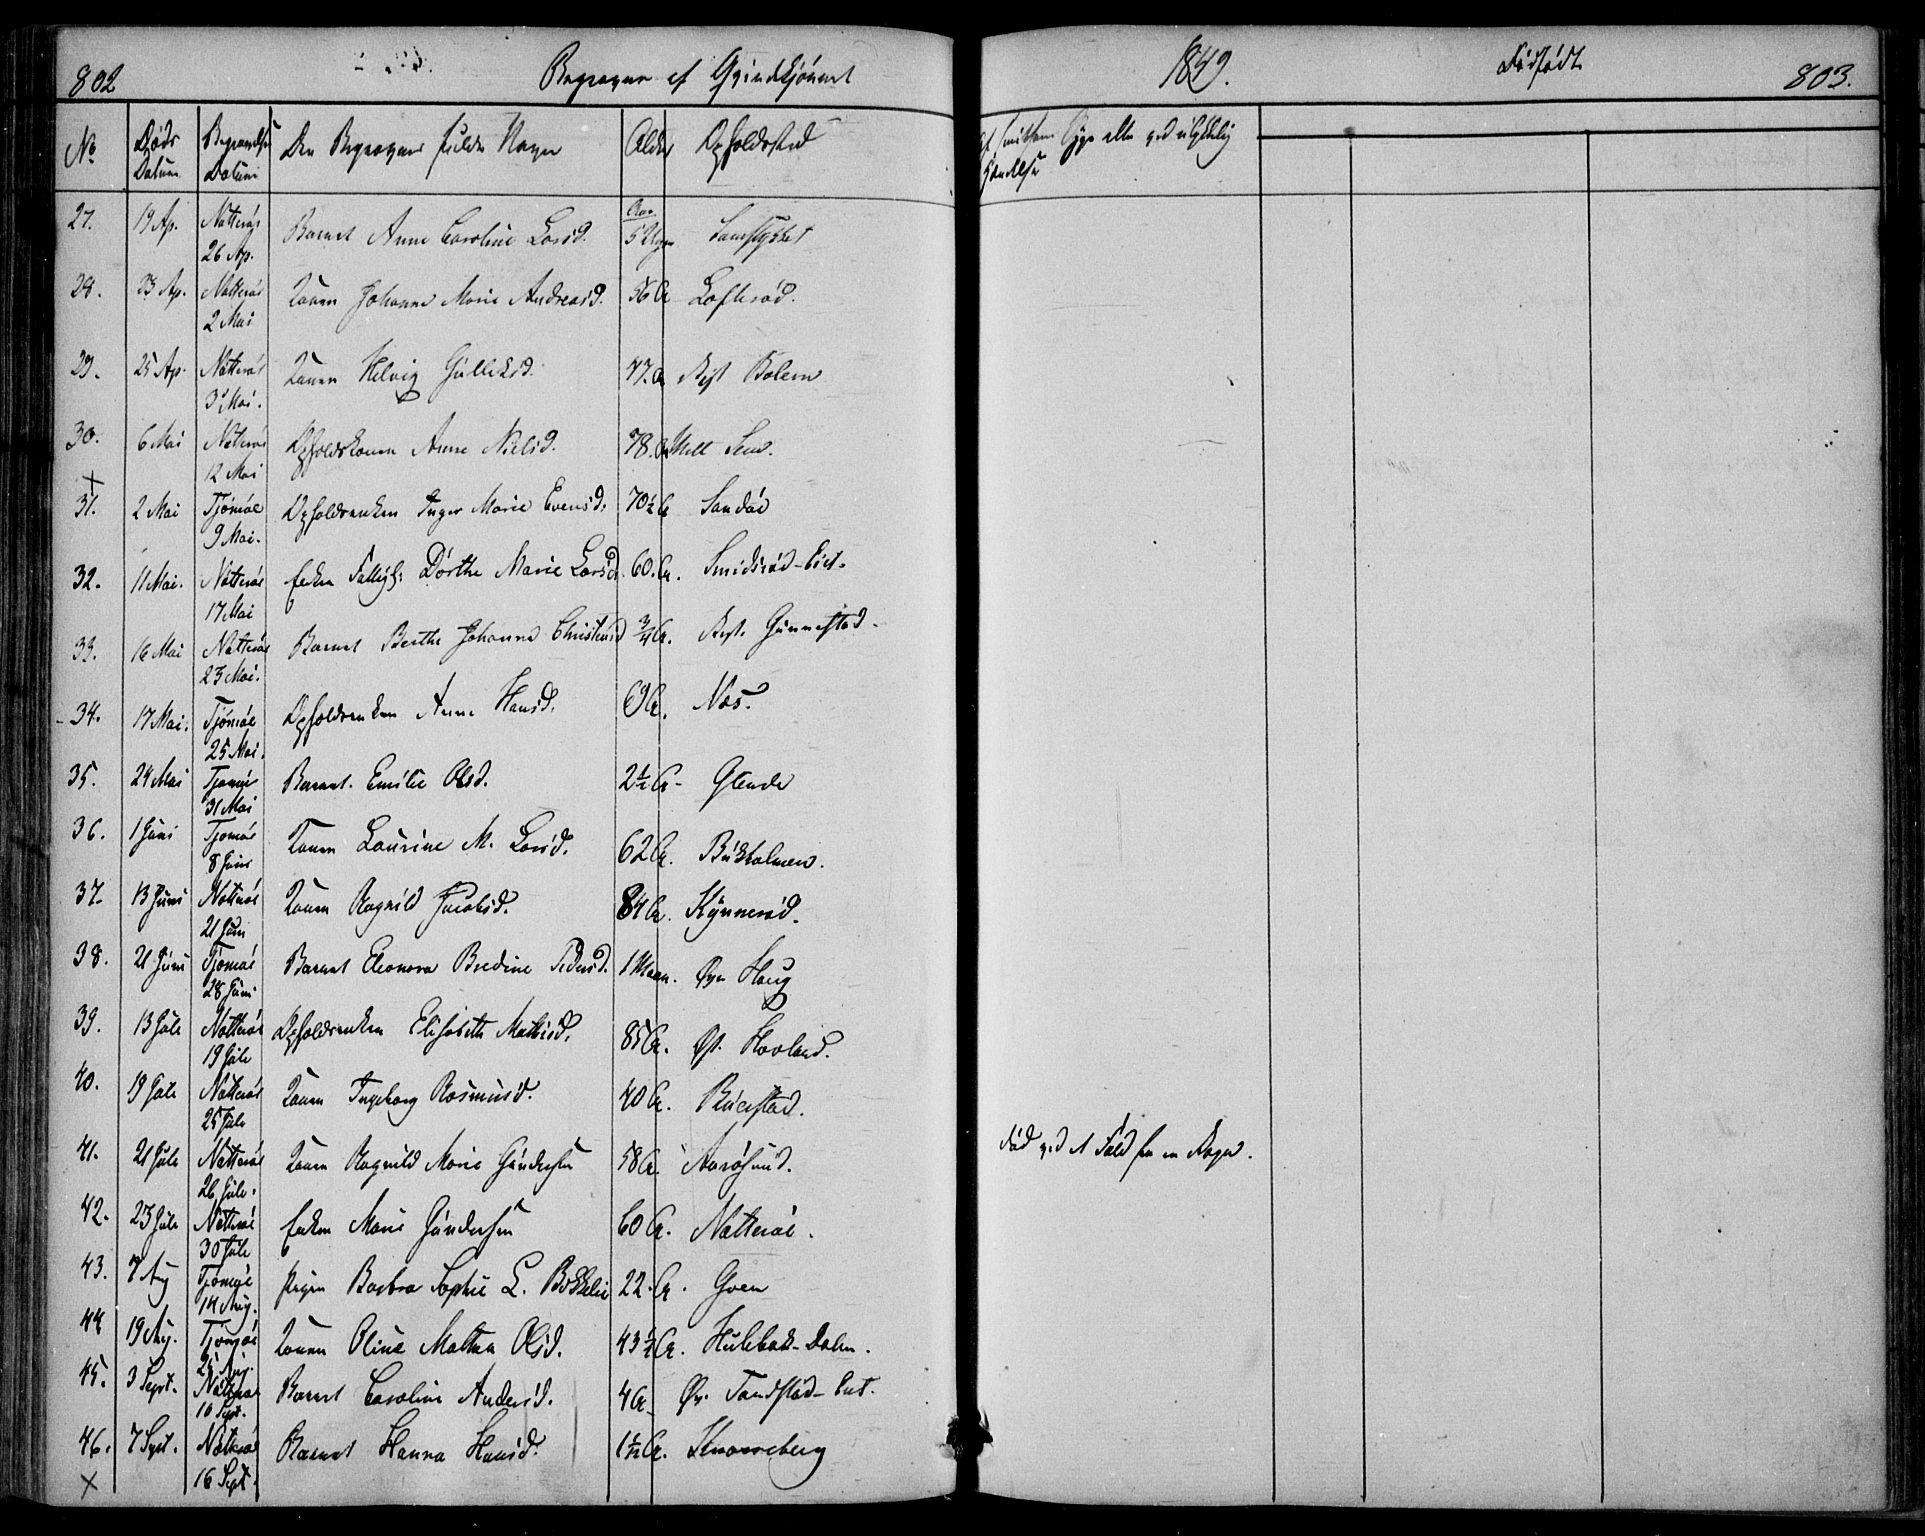 802
Begravne af Qvindekjønnet
1849.
Dødfødt
803.
No
Døds Datum
Begravelses Datum
Den Begravnes fulde Navn
Alder
Opholdssted
Af smitsom Syge eller ved ulykkelig
Hændelse
27. 19 Ap. Nøtterøe 26 Ap. Barnet Anne Caroline Larsd. 5 Uger
28. 23 Ap. Nøtterøe 2 Mai Konen Johanne Marie Andreasd. 56 A Lofterød.
29. 25 Ap. Nøtterøe 3 Mai. Konen Helvig Gulliksd. 47. A Vest Bolern
30. 6 Mai Nøtterøe 12 Mai Opholdskonen Anne Nielsd. 78. A Mell Sem.
31. 2 Mai Tjømøe 9 Mai. Opholdsenken Inger Marie Evensd. 70½ A Sandøe
32. 11 Mai. Nøtterøe 17 Mai Enken Dorthe Marie Larsd. 60. A. Smidsrød-Eiet.
33. 16 Mai Nøtterøe 23 Mai. Barnet Berthe Johanne Christensd 3/4 A. Vest. Gunnestad.
34. 17 Mai. Tjømøe 25 Mai. Opholdsenken Anne Hansd. 69 A. Næs.
35. 24 Mai Tjømøe 31 Mai Barnet Emilie Olsd. 2½ A Glende
36. 1 Juni Tjomøe 8 Juni Konen Laurine M. Larsd. 62 A. Bukholmen.
37. 13 Juni Nøtterøe 21 Juni Konen Ragnild Jacobsd. 84 A. Kynnerød.
38. 21 Juni Tjomøe 28 Juni Barnet Eleonora Bredine Pedersd. 1 Maan. Øvr Haug
39. 13 Juli Nøtterøe 19 Juli Opholdsenken Elisabeth Mathisd. 85 A. Øst. Hovland.
40. 19 Juli Nøtterøe 25 Juli Konen Ingeborg Rasmusd. 40 A. Buerstad.
41. 21 Juli Nøtterøe 26 Juli. Konen Ragnild Marie Gundersen 58 A. Aarøsund. Død ved et Fald fra en Trappe.
42. 23 Juli Nøtterøe 30 Juli Enken Marie Gundersen 60 A. Nøtterøe.
43. 7 Aug Tjømøe 14 Aug. Pigen Barbra Sophie L. Bokkelie 22. A. Gven
44 19 Aug. Tjomøe 25 Aug. Konen Oline Mathea Olsd. 43½ A. Hulebak-Dalen.
45. 3 Sept. Nøtterøe 10 Sept. Barnet Caroline Andersd. 4 A Øv. Tandstad-Eiet.
46. 7 Sept. Nøtterøe 16 Sept. Barnet Hanna Hansd. 1½ A. Knarreberg